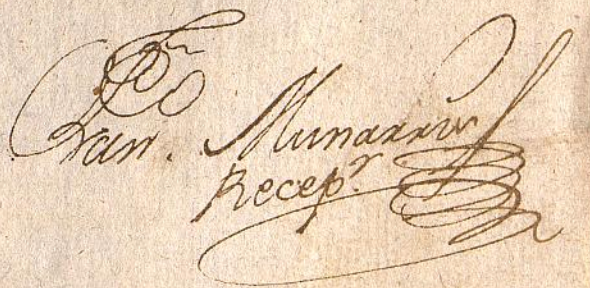 Fran.co Munarriz
Recep.r